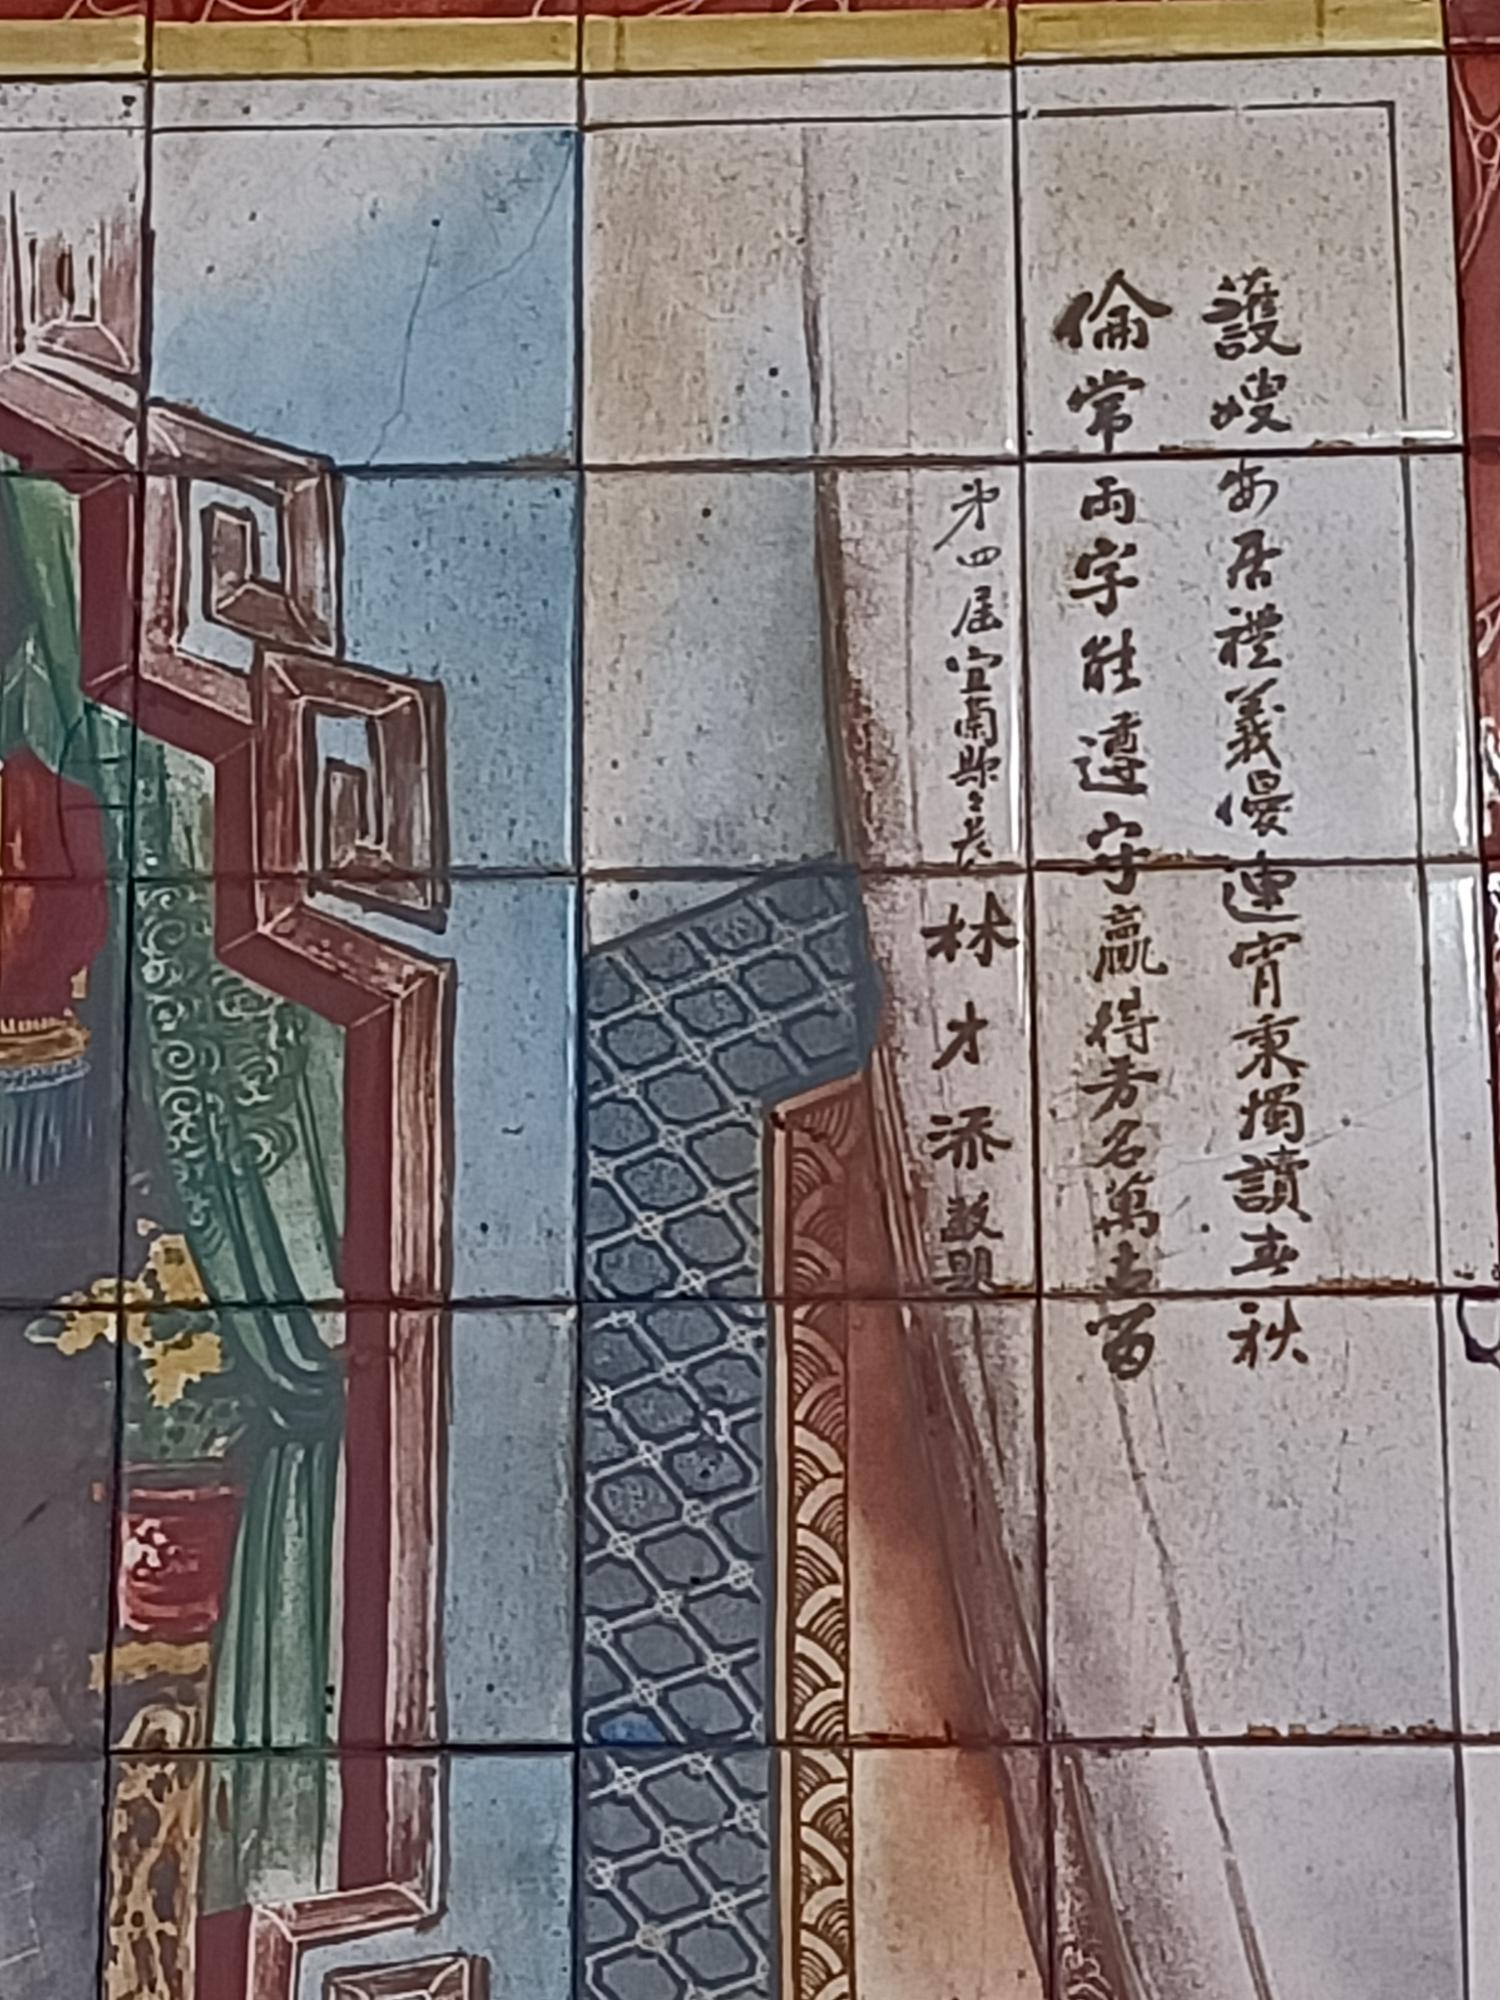 護嫂安居禮義優連宵秉燭讀春秋
倫常兩字能遵守贏得芳名萬古留
第四屆宜蘭縣々長林才添敬題